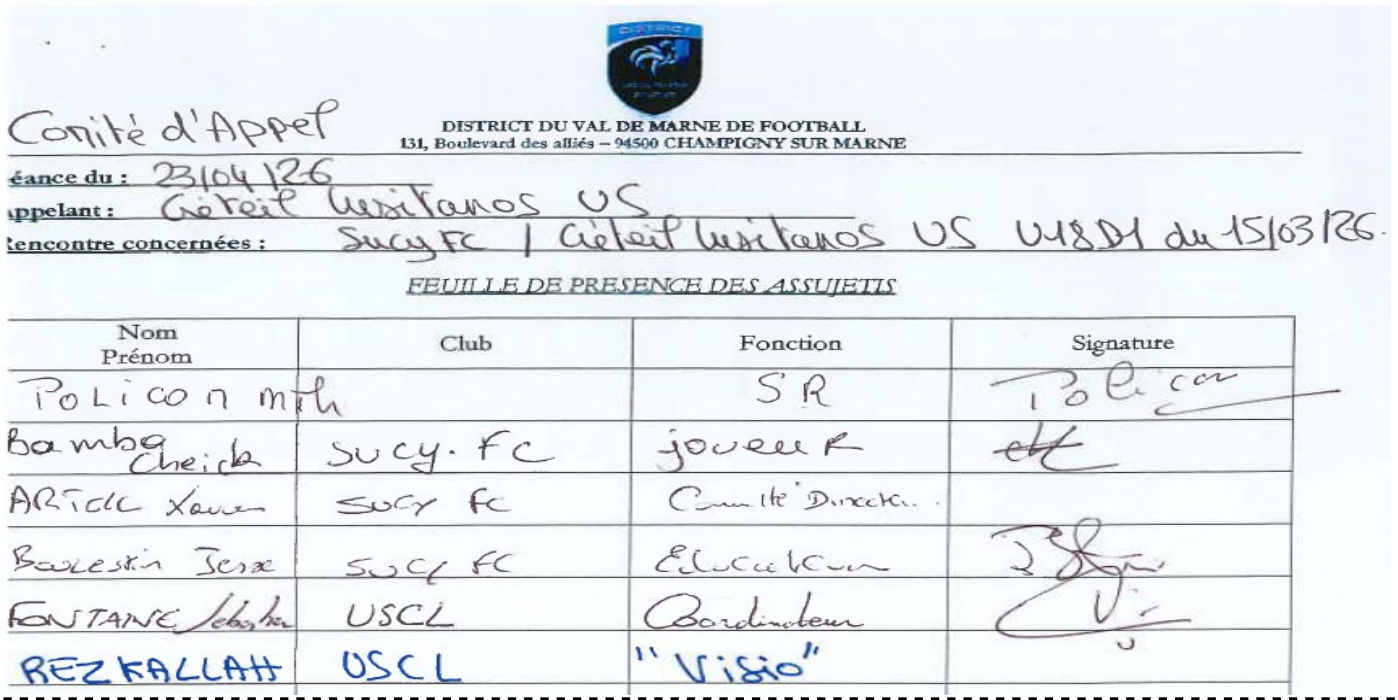 DISTRICT
Comité d'Appel
DISTRICT DU VAL DE MARNE DE FOOTBALL
131, Boulevard des alliés – 94500 CHAMPIGNY SUR MARNE
éance du : 23/04/26
ppelant : Créteil Lusitanos US
Rencontre concernées : Sucy FC / Créteil Lusitanos US U18 D1 du 15/03/26.
FEUILLE DE PRESENCE DES ASSUJETIS
Nom Prénom Club Fonction Signature
POLICON mth SR Policon
Bamba Cheick SUCY. FC joueuR
Xavier SUCY FC Comité Directeur
SUCY FC Educateur
FONTAINE Sebastien USCL Coordinateur
REZKALLAH USCL "Visio"